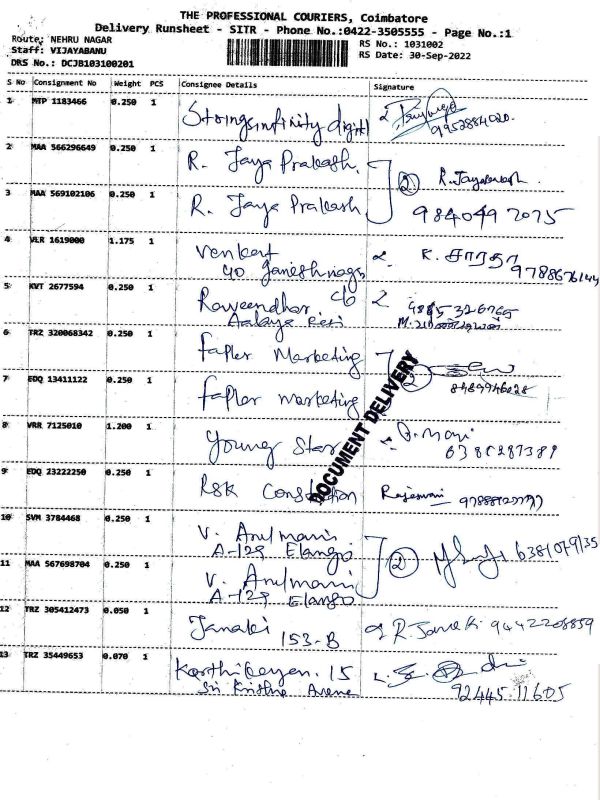 THE PROFESSIONAL COURIERS, Coimbatore
Delivery Runsheet - SITR - Phone No.:0422-3505555 - Page No.:1
Route: NEHRU NAGAR
Staff: VIJAYABANU
DRS No.: DCJB103100201
RS No.: 1031002
RS Date: 30-Sep-2022
S No Consignment No Weight PCS Consignee Details Signature
1 MTP 1183466 0.250 1 Stringsinfinity digitl
9952884020
2 MAA 566296649 0.250 1 R. Jaya Prakash. 2 R.Jayaprakash.
3 MAA 569102106 0.250 1 R. Jaya Prakash 9840497075
4 VLR 1619000 1.175 1 Venkat
40 Ganeshnagr
K. சாரதா
9788676144
5 KVT 2677594 0.250 1 Raveendhar
6 TRZ 320068342 0.250 1 Fapler Marketing
7 EDQ 13411122 0.250 1 Fapler marketing 2
8 VRR 7125010 1.200 1 Young Star
9 EDQ 23222250 0.250 1 RSK Rajeswari
DOCUMENT DELIVERY
10 SVM 3784468 0.250 1 V. Arulmani
A-129 Elango
2
11 MAA 567698704 0.250 1 V. Arulmani
A-129 Elango
12 TRZ 305412473 0.050 1 Janaki 153-B R.Janaki 9442208859
13 TRZ 35449653 0.070 1 Karthikeyan. 15
Sri Krishna Avenue
92445 11605